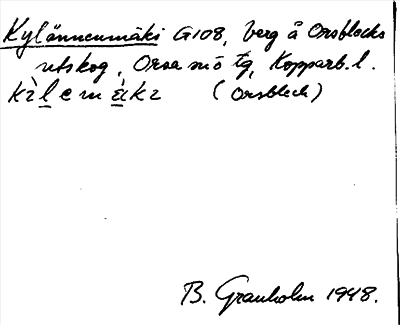 Kylännenmäki G108, berg å Orsblecks
utskog, Orsa sn ö tg, Kopparb. l.
kìlemäkɩ (Orsbleck)
B. Granholm 1948.